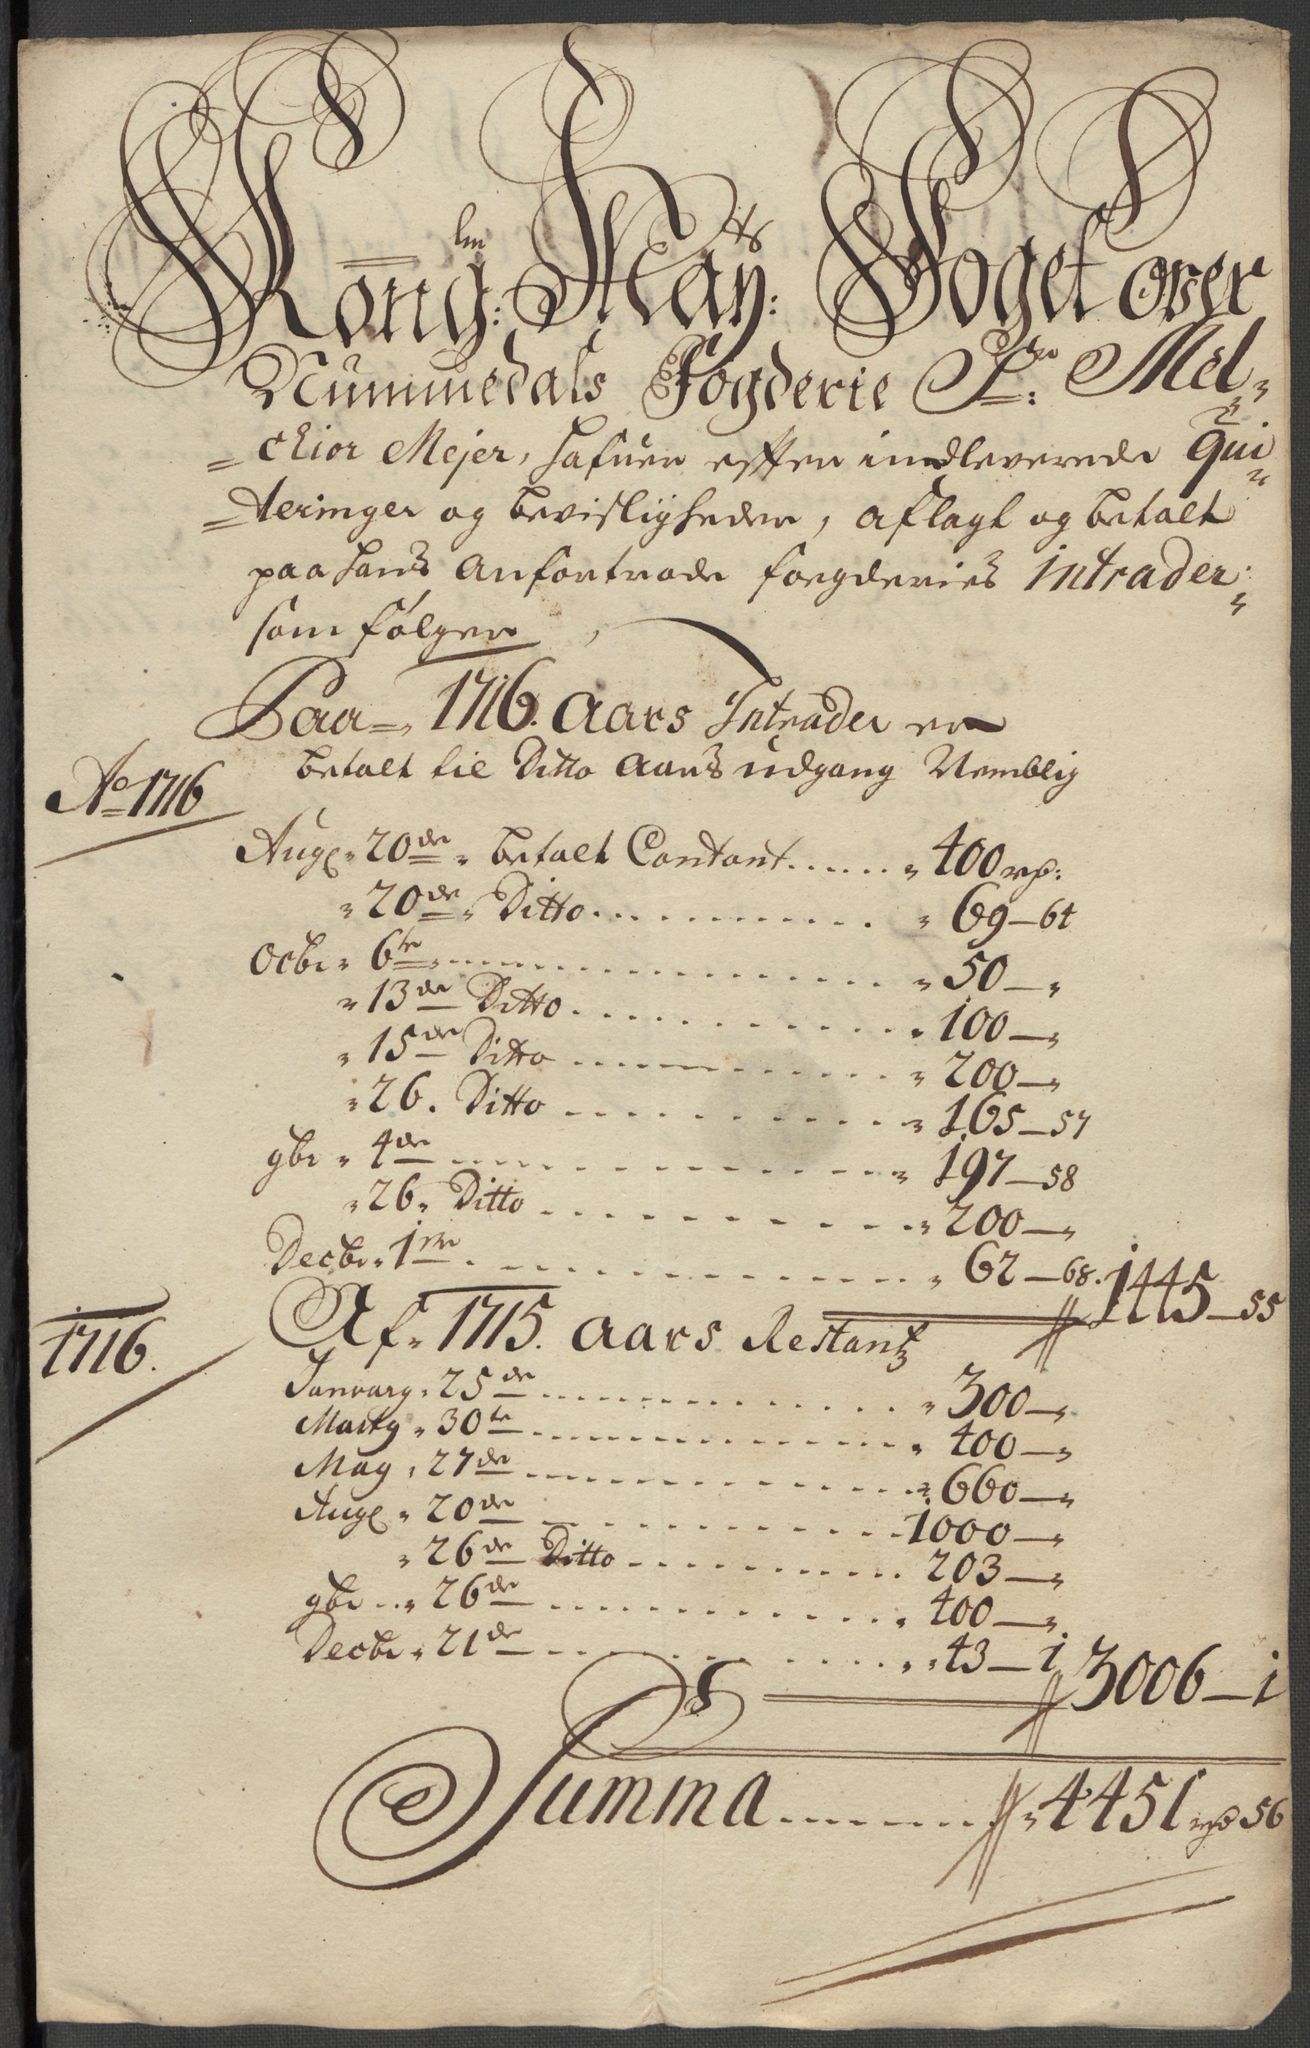 Kong: lm May: ts Foget over
Nummedals Fogderie Sr: Mel-
chior Mejer, hafuer efter indleverede Qui-
teringer og beviisligheder, aflagt og betalt
paa hans anfortrode foegderies Intrader:
som følger
Paa 1716. Aars Intrader er
betalt til Ditto Aars udgang Nemblig
Ao 1716
Aug: 20de betalt Contant ...... 400 rd:
20de Ditto ........ 69 – 64
Octbr 6te ........ 50 – "
13de Ditto ........ 100 – "
15de Ditto ........ 200 – "
26. Ditto ........ 165 – 57
9br 4de ........ 197 – 58
26. Ditto ........ 200 – "
Decbr 1ste ........ 62 – 68. 1445 – 55
1716.
Af 1715. Aars Restantz
January 25de ........ 300 – "
Marty 30te ........ 400 – "
May 27de ........ 660 – "
Aug: 20de ........ 1000 – "
26de Ditto ........ 203 – "
9br 26de ........ 400 – "
Decbr 21de ........ 43 – 1 3006 – 1
Summa ........ 4451 rd 56